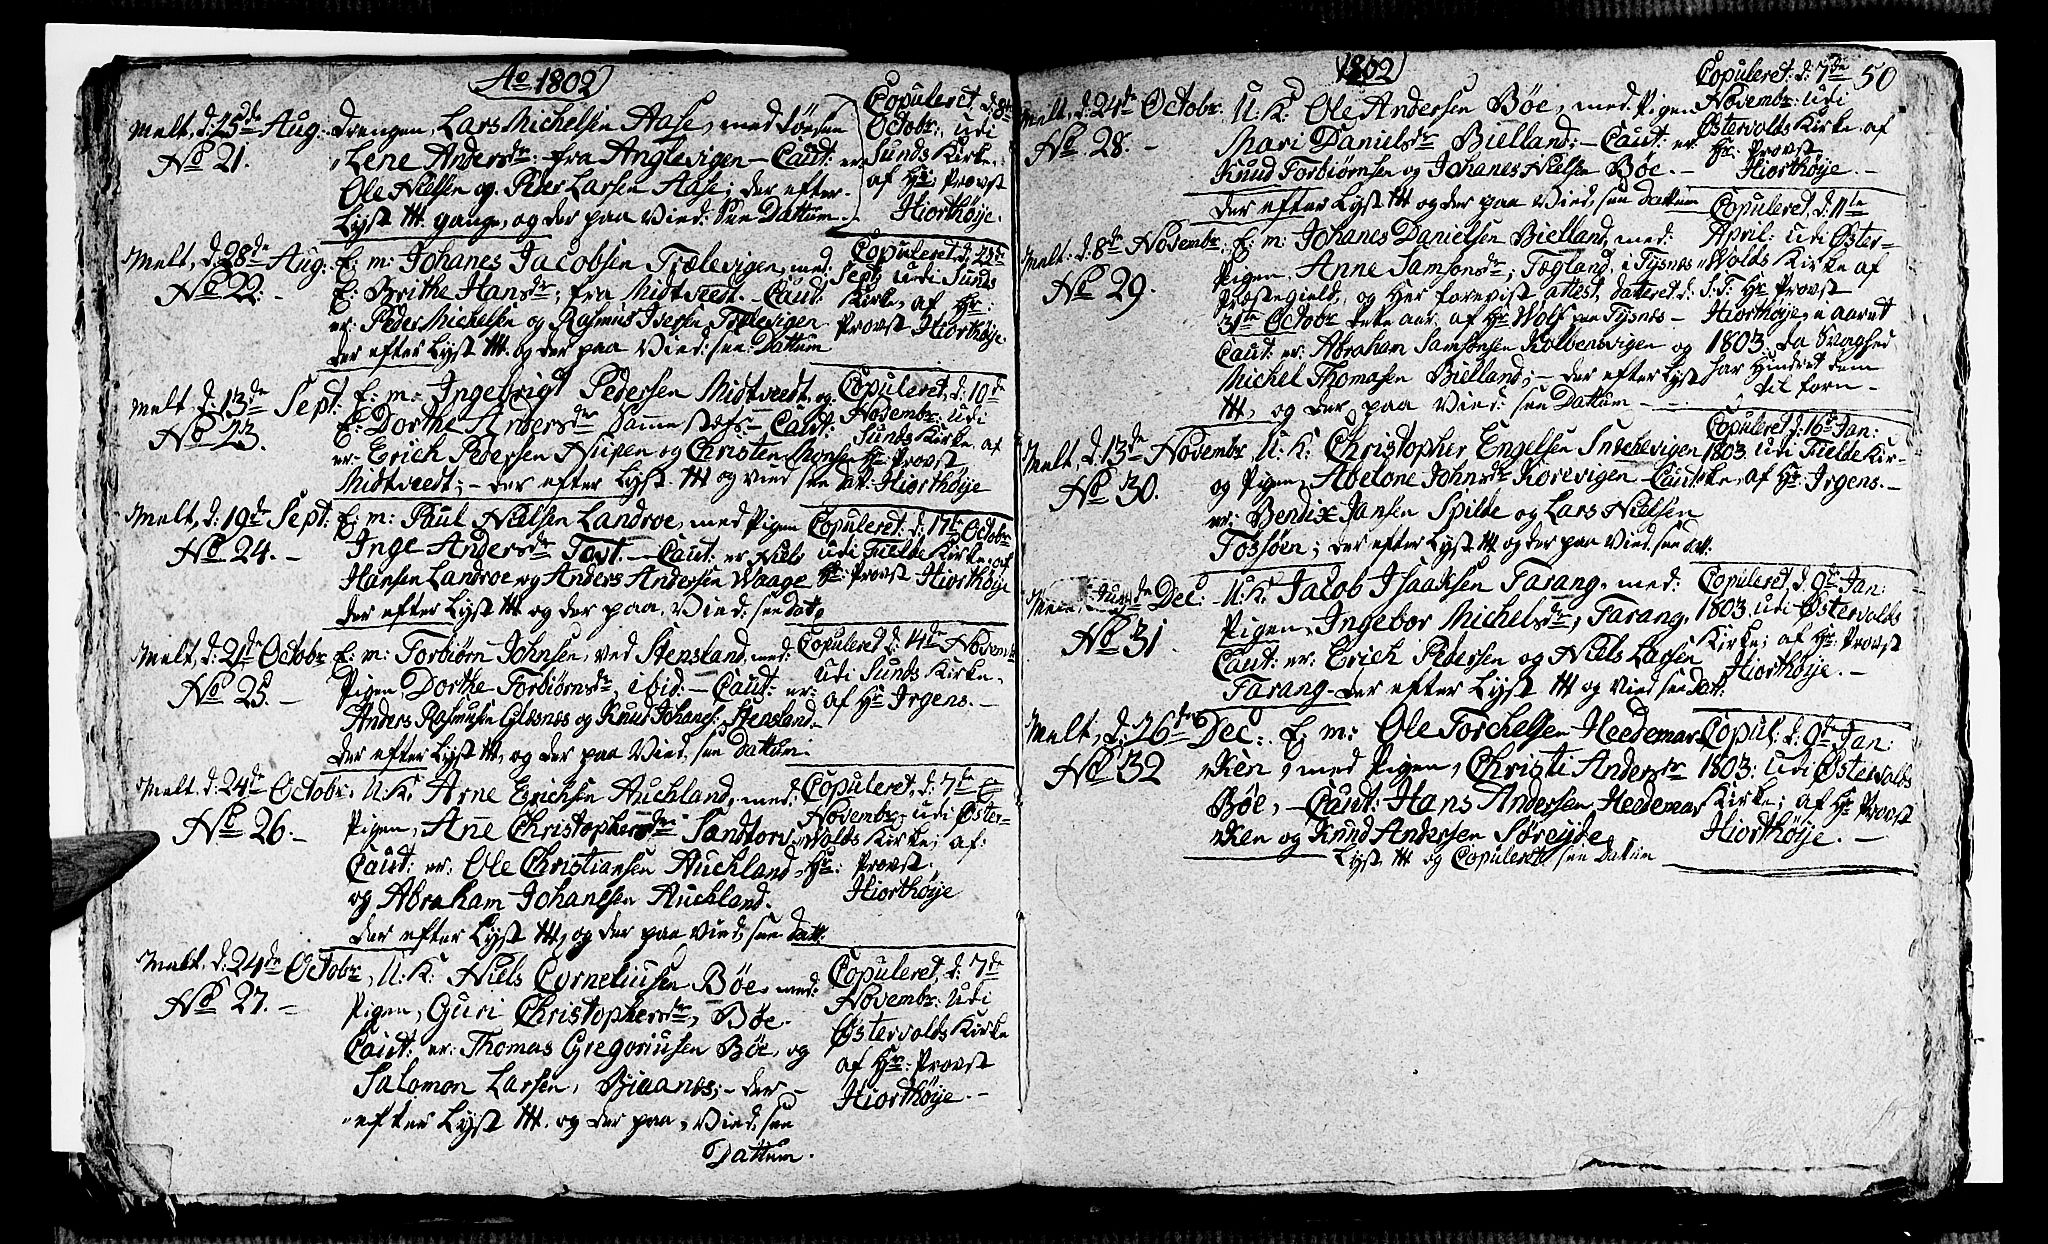 Ao 1802
Melt, d: 25de Aug: Drengen, Lars Michelsen Aase, med Tøsen
No 21.
Lene Andersdr: fra Anglevigen - Caut: er
Ole Nielsen og Peder Larsen Aase; der efter
Lyst ttt. gange, og der paa Vied: See Dattum.
Copuleret, d: 8de
Octobr: udi
Sunds Kirke,
af Hr: Provst
Hiorthøÿe.
Melt, d: 28de Aug: E: m: Johanes Jacobsen Trælevigen, med
No 22.
E: Brithe Hansdr; fra Midtveedt. - Caut:
er: Peder Michelsen og Rasmus Iversen Trælevigen
der efter Lyst ttt. og der paa Vied: see: Dattum
Copuleret, d:
Sept: udi Sunds
Kirke, af Hr:
Provst Hiorthøÿe.
Melt, d: 13de Sept: E: m: Ingebrigt Pedersen Midtveedt, og
No 23.
E: Dorthe Andersdr Sammestæds - Caut:
er: Erich Pedersen Nupen og Christen Monsen
Midtveedt; - der efter Lyst ttt og vied see dat:
Copuleret, d: 10de
Novembr: udi
Sunds Kirke, af
Hr: Provst
Hiorthøÿe
Melt, d: 19de Sept: E: m: Paul Nielsen Landroe, med Pigen
No 24. -
Inge Andersdr Toft. - Caut: er Niels
Hansen Landroe og Anders Andersen Waage
der efter Lyst ttt og der paa, Vied: see dato
Copuleret: d: 17de Octobr
udi Fielde Kirke, af
Hr: Provst Hiorthøÿe
Melt, d: 21de Octobr E: m: Torbiørn Johnsen, ved Stensland, med:
No 25. -
Pigen, Dorthe Torbiørnsdr, ibid: - Caut: er:
Anders Rasmusen Glæsnæs og Knud Johanes: Stensland.
der efter Lyst ttt, og der paa Vied: see dattum.
Copuleret d: 14de Novembr
udi Sunds Kirke,
af Hr Irgens. -
Melt, d: 24de Octobr, U: K: Arne Erichsen Auchland, med:
No 26. -
Pigen, Ane Christophersdr Sandtorv
Caut: er: Ole Christiansen Auchland
og Abraham Johanesen Auchland.
der efter Lyst ttt, og der paa Vied, see datt:
Copuleret, d: 7de
Novembr, udi Øster-
volds Kirke, af:
Hr: Provst
Hiorthøÿe
Melt, d: 24de Octobr, U: K: Niels Corneliusen Bøe, med:
No 27. -
Pigen, Guri Christophersdr, Bøe.
Caut: er: Thomas Gregoriusen Bøe, og
Salomon Larsen, Biaanæs; - der -
efter Lyst ttt. og der paa, Vied: see
Dattum.
Copuleret, d: 7de
Novembr: udi
Østervolds Kirke
af Hr: Provst
Hiorthøÿe. -
1802
50
Melt, d: 24de Octobr: U: K: Ole Andersen Bøe, med Pigen
No 28. -
Mari Danielsdr Bielland; - Caut: er:
Knud Torbiørnsen og Johanes Nielsen Bøe. -
der efter Lyst ttt og der paa Vied, see dattum
Copuleret: d: 7de
Novembr: udi
Østervolds Kirke, af
Hr: Provst
Hiorthøÿe. -
Melt: d: 8de Novembr: E: m: Johanes Danielsen Bielland, med:
No 29.
Pigen, Anne Samsonsdr; Tegland, i Tysnes
Præstegield, og Her forevist attest, dateret d:
31te Octobr dette aar, af Hr Wolf paa Tysnes -
Caut: er: Abraham Samsonsen Kolbensvigen og
Michel Thomasen Bielland; - der efter Lyst
ttt, og der paa Vied: see Dattum -
Copuleret, d: 11te
April: udi Øster-
Volds Kirke af
S:T: Hr Provst
Hiorthøÿe, aaret
1803. da Svaghed
har hindret dem
til forn -
Melt, d: 13de Novembr U: K: Christopher Engelsen Snekkevigen
No 30.
og Pigen, Abelone Johnsdr Korevigen - Caut:
er: Bendix Jansen Spilde og Lars Nielsen
Tossøen; der efter Lyst ttt og der paa Vied. see datt:
Copuleret d: 16de Jan:
1803. udi Fielde Kir-
ke, af Hr: Irgens. -
Dec: U: K: Jacob Isaaksen Farang, med:
No 31
Pigen, Ingebor Michelsdr; Farang,
Caut: er: Erich Pedersen og Niels Larsen
Farang - der efter Lyst ttt og Vied see Datt:
Copuleret, d: 9de Jan:
1803. udi Østervolds
Kirke; af Hr: Provst
Hiorthøÿe. -
Melt, d: 26de Dec: E: m: Ole Torchelsen Heedemar-
No 32
ken, med Pigen, Christi Andersdr
Bøe, - Caut: Hans Andersen Heedemar
ken og Knud Andersen Søreÿde
Lyst, ttt og Copuleret see datum
Copul; d: 9de Jan:
1803: udi Østervolds
Kirke; af Hr Provst
Hiorthøÿe. -